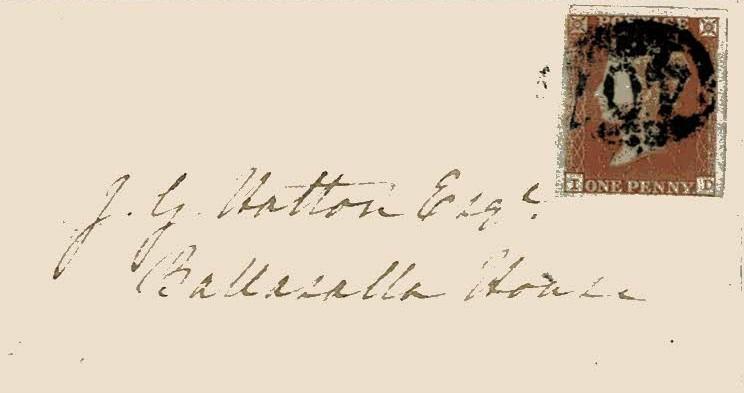 POSTAGE
I D
ONE PENNY
J. G. Hatton Esqr.
Ballasalla House